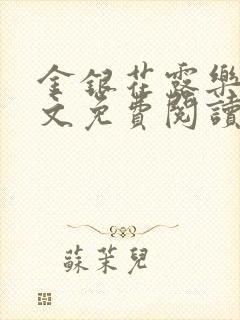 金銀花露樂
文免費閱讀
蘇茉兒